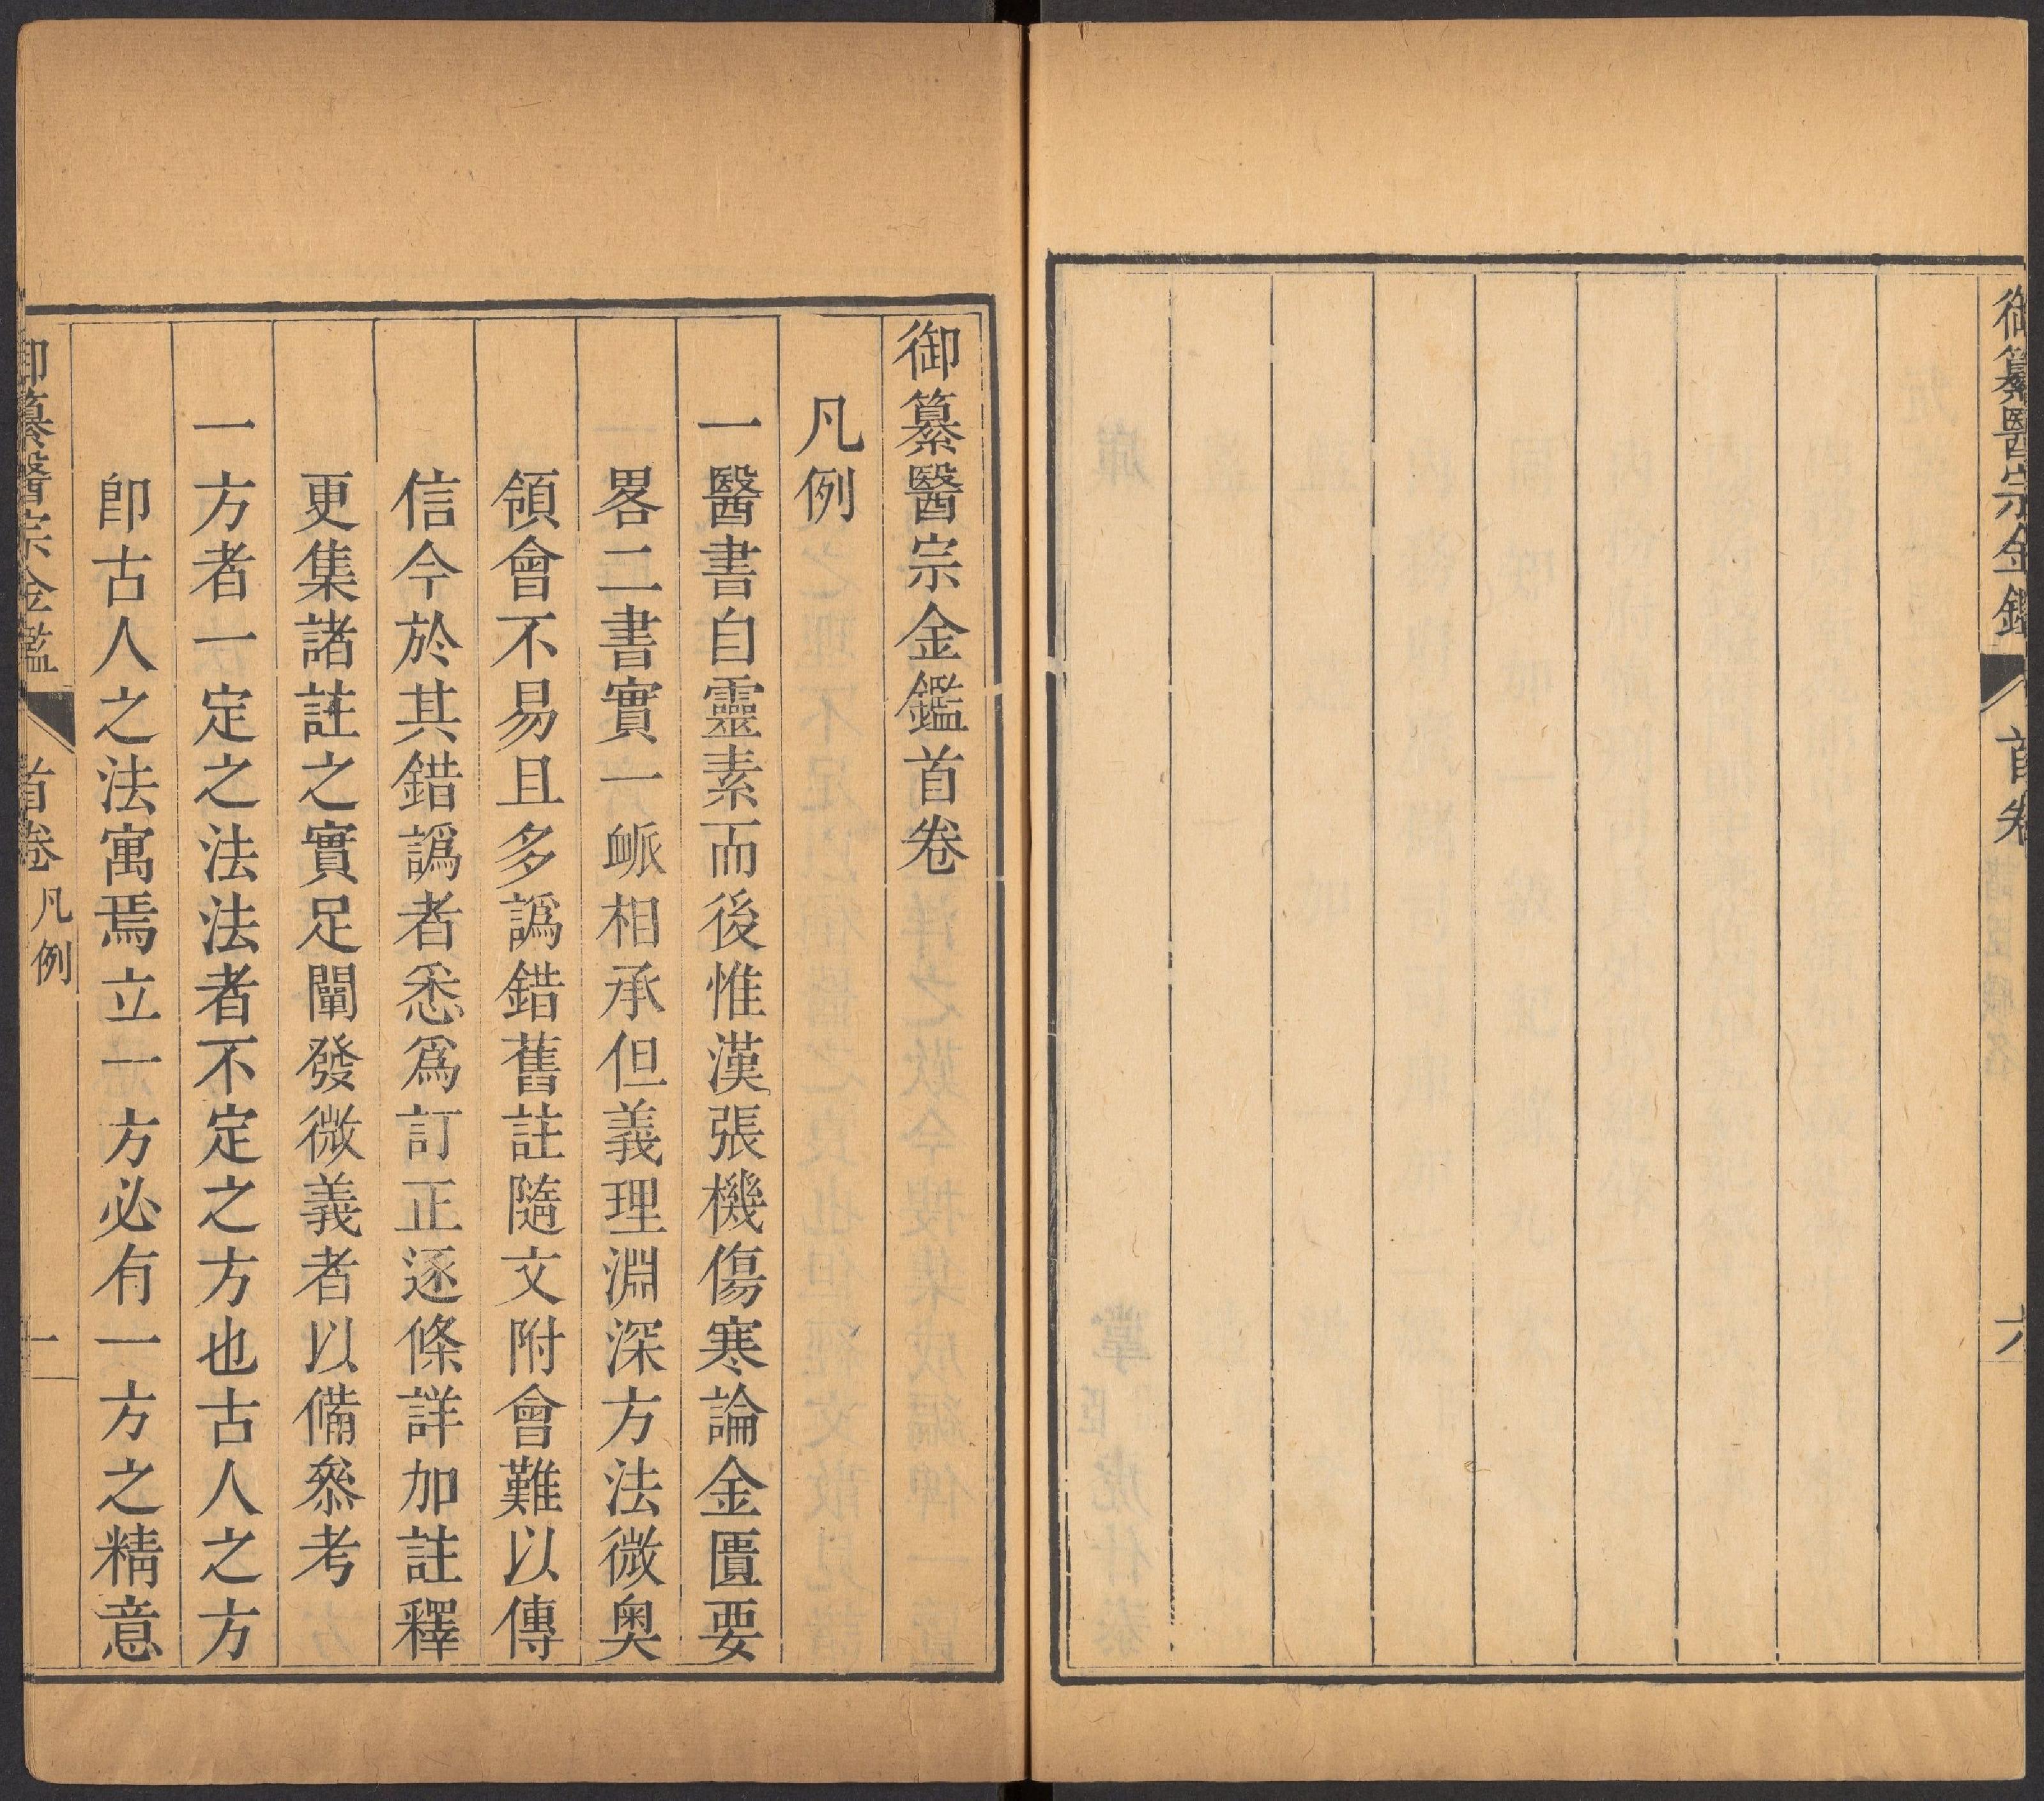 御纂醫宗金鑑
首卷
六
御纂醫宗金鑑首卷
凡例
一醫書自靈素而後惟漢張機傷寒論金匱要
畧二書實一衇相承但義理淵深方法微奥
領會不易且多譌錯舊註隨文附會難以傳
信今於其錯譌者悉爲訂正逐條詳加註釋
更集諸註之實足闡發微義者以備叅考
一方者一定之法法者不定之方也古人之方
卽古人之法寓焉立一方必有一方之精意
御纂醫宗金鑑
首卷
凡例
一